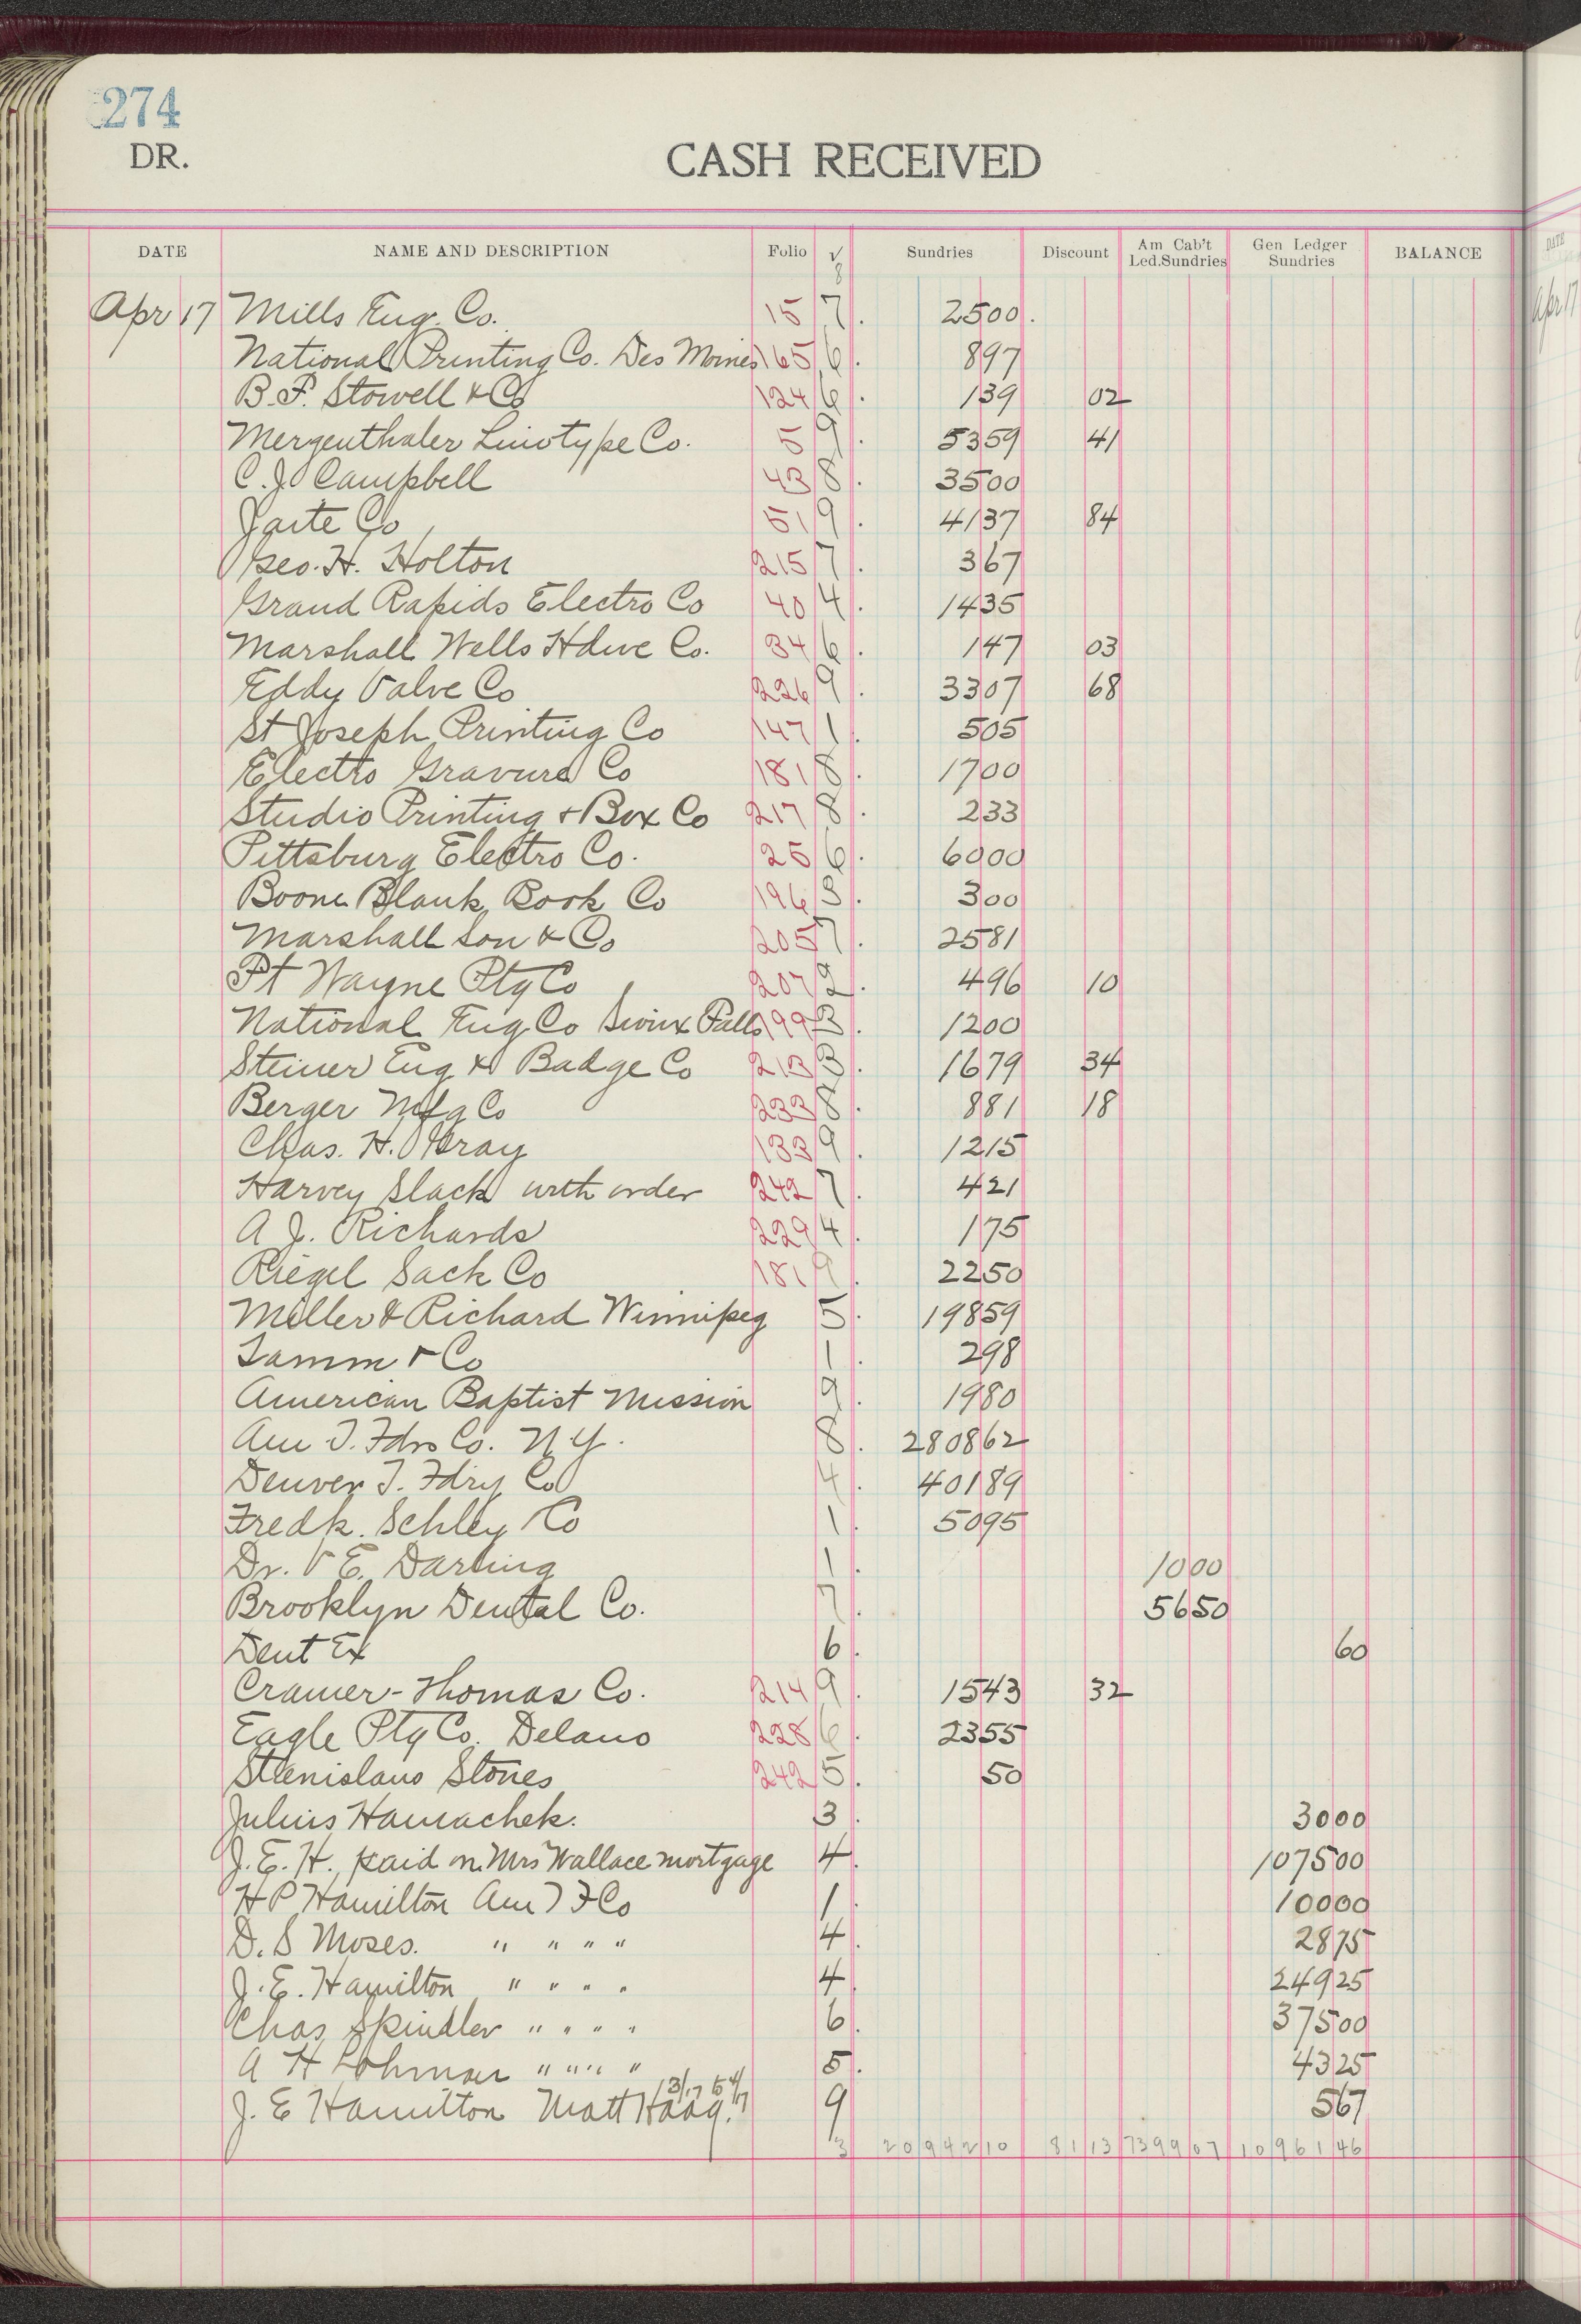 274
DR.
CASH RECEIVED
DATE NAME AND DESCRIPTION Folio √ Sundries Discount Am Cab't Led.Sundries Gen Ledger Sundries BALANCE
8
Apr 17 Mills Eng. Co. 15 7. 2500.
National Printing Co. Des Moines 165 6. 897
B.F. Stowell & Co 124 6. 139 02
Mergenthaler Linotype Co. 5 9. 5359 41
C.J. Campbell 43 8. 3500
Jaite Co 51 9. 4137 84
Geo. H. Holton 215 7. 367
Grand Rapids Electro Co 40 4. 1435
Marshall Wells Hdwe Co. 34 6. 147 03
Eddy Valve Co 226 9. 3307 68
St Joseph Printing Co 147 1. 505
Electro Gravure Co 181 8. 1700
Studio Printing & Box Co 217 8. 233
Pittsburg Electro Co. 25 6. 6000
Boone Blank Book Co 196 3. 300
Marshall Son & Co 205 7. 2581
Ft Wayne Ptg Co 207 2. 496 10
National Eng Co Sioux Falls 199 3. 1200
Steiner Eng & Badge Co 213 3. 1679 34
Berger Mfg Co 233 8. 881 18
Chas. H. Gray 133 9. 1215
Harvey Slack with order 242 7. 421
A J. Richards 229 4. 175
Riegel Sack Co 181 9. 2250
Miller & Richard Winnipeg 5. 19859
Tamm & Co 1. 298
American Baptist Mission 9. 1980
Am T. Fdro Co. N.Y. 8. 280862
Denver T. Fdry Co 4. 40189
Fredk. Schley Co 1. 5095
Dr. V E. Darling 1. 1000
Brooklyn Dental Co. 7. 5650
Dent Ex 6. 60
Cramer-Thomas Co. 214 9. 1543 32
Eagle Ptg Co. Delano 228 6. 2355
Stenislaus Stones 242 5. 50
Julius Hamachek. 3. 3000
J.E.H. paid on Mrs Wallace mortgage 4. 107500
H P Hamilton Am T F Co 1. 10000
D. S Moses. " " " " 4. 2875
J. E. Hamilton " " " " 4. 24925
Chas Spindler " " " " 6. 37500
A H Lohman " " " " 5. 4325
J. E Hamilton Matt Haag. 9 567
3 2094210 8113 739907 1096146